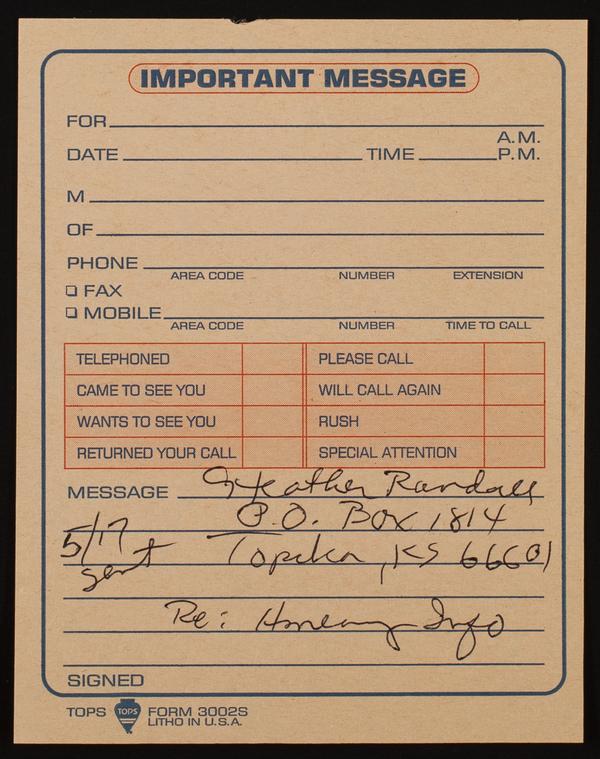 IMPORTANT MESSAGE
FOR
A.M.
DATE TIME P.M.
M
OF
PHONE
AREA CODE NUMBER EXTENSION
FAX
MOBILE
AREA CODE NUMBER TIME TO CALL
TELEPHONED PLEASE CALL
CAME TO SEE YOU WILL CALL AGAIN
WANTS TO SEE YOU RUSH
RETURNED YOUR CALL SPECIAL ATTENTION
MESSAGE Heather Randall
P.O. Box 1814
5/17 Topeka, KS 66601
sent
Re: Info
SIGNED
TOPS TOPS FORM 3002S
LITHO IN U.S.A.